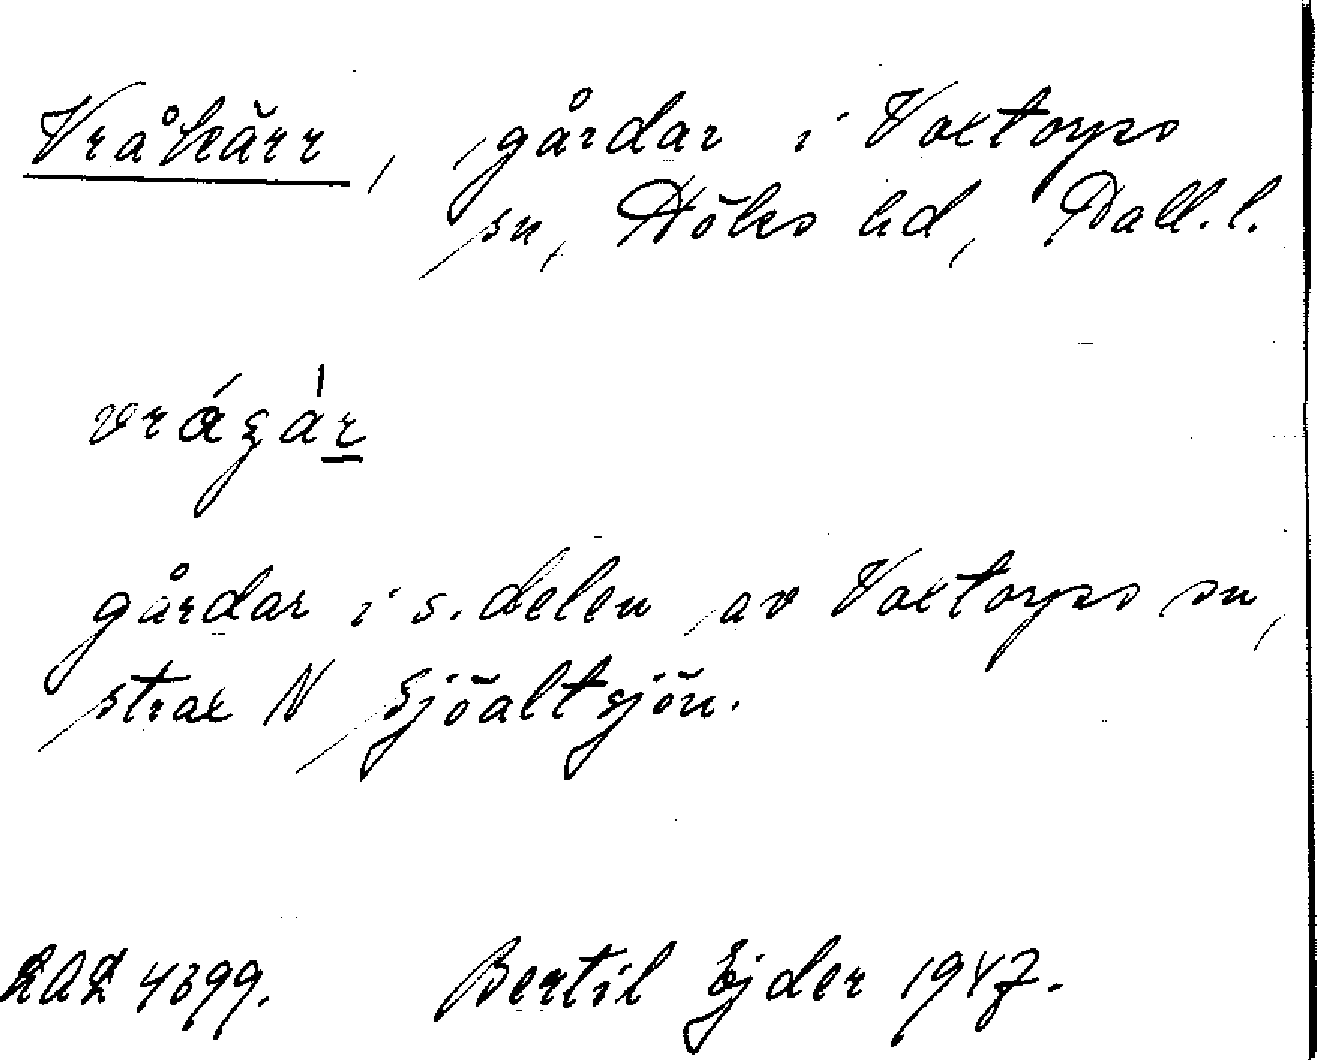 Vråkärr, gårdar i Voxtorps
sn, Höks hd, Hall. l.
gårdar i s. delen av Voxtorps sn,
strax N Sjöaltsjön.
LAL 4399. Bertil Ejder 1947.